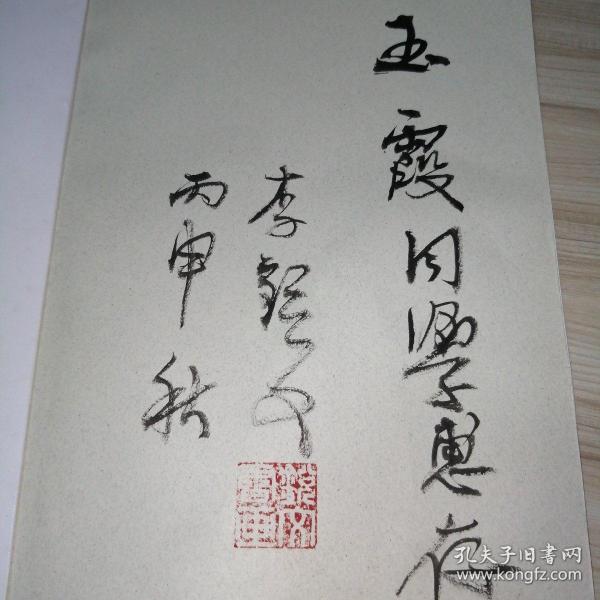 玉霞同学惠存
李
丙申秋
孔夫子旧书网
www.kongfz.com